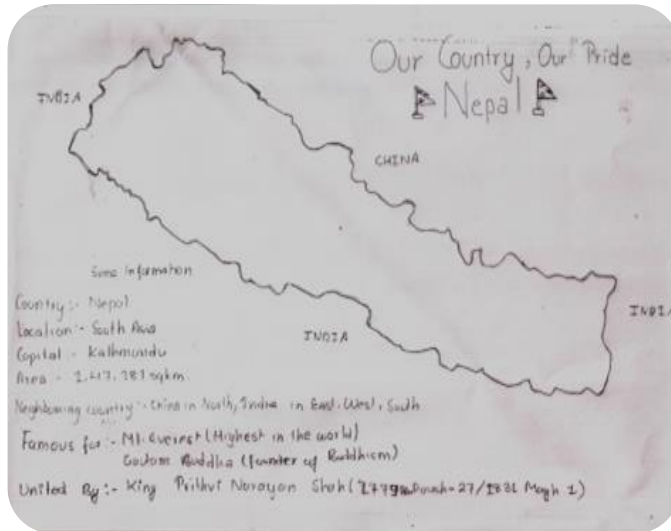 Our Country, Our Pride
Nepal
INDIA
CHINA
INDIA
INDIA
Some information
Country:- Nepal
Location:- South Asia
Capital - Kathmandu
Area - 1,47,181 sqkm.
Neighbouring country:- China in North, India in East, West, South
Famous for:- Mt. Everest (Highest in the world)
Goutam Buddha (founder of Buddhism)
United By:- King Prithvi Narayan Shah (1779 Poush-27/1831 Magh 1)